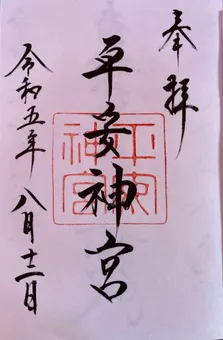 奉拝
平安神宮
平安神宮
令和五年 八月十二日